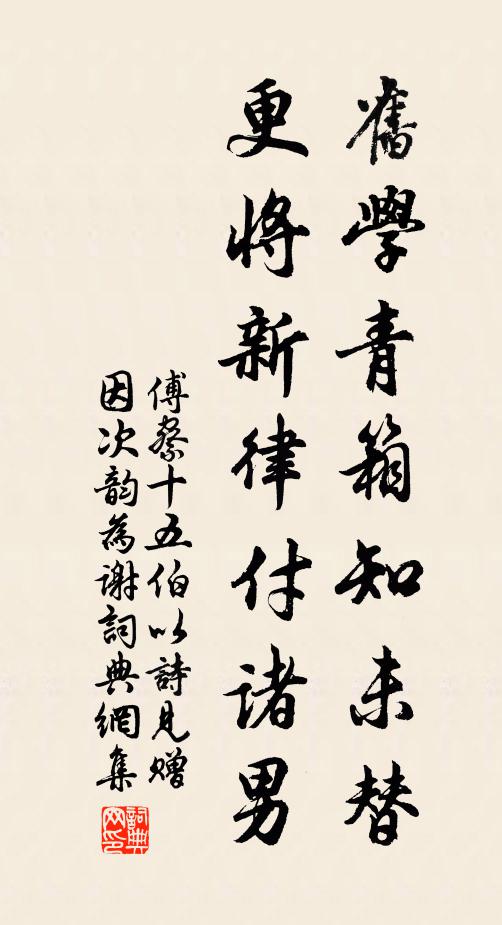 舊學青箱知未替
更將新律付諸男
傅察十五伯以詩見贈
因次韵為谢詞典網集
詞典网印